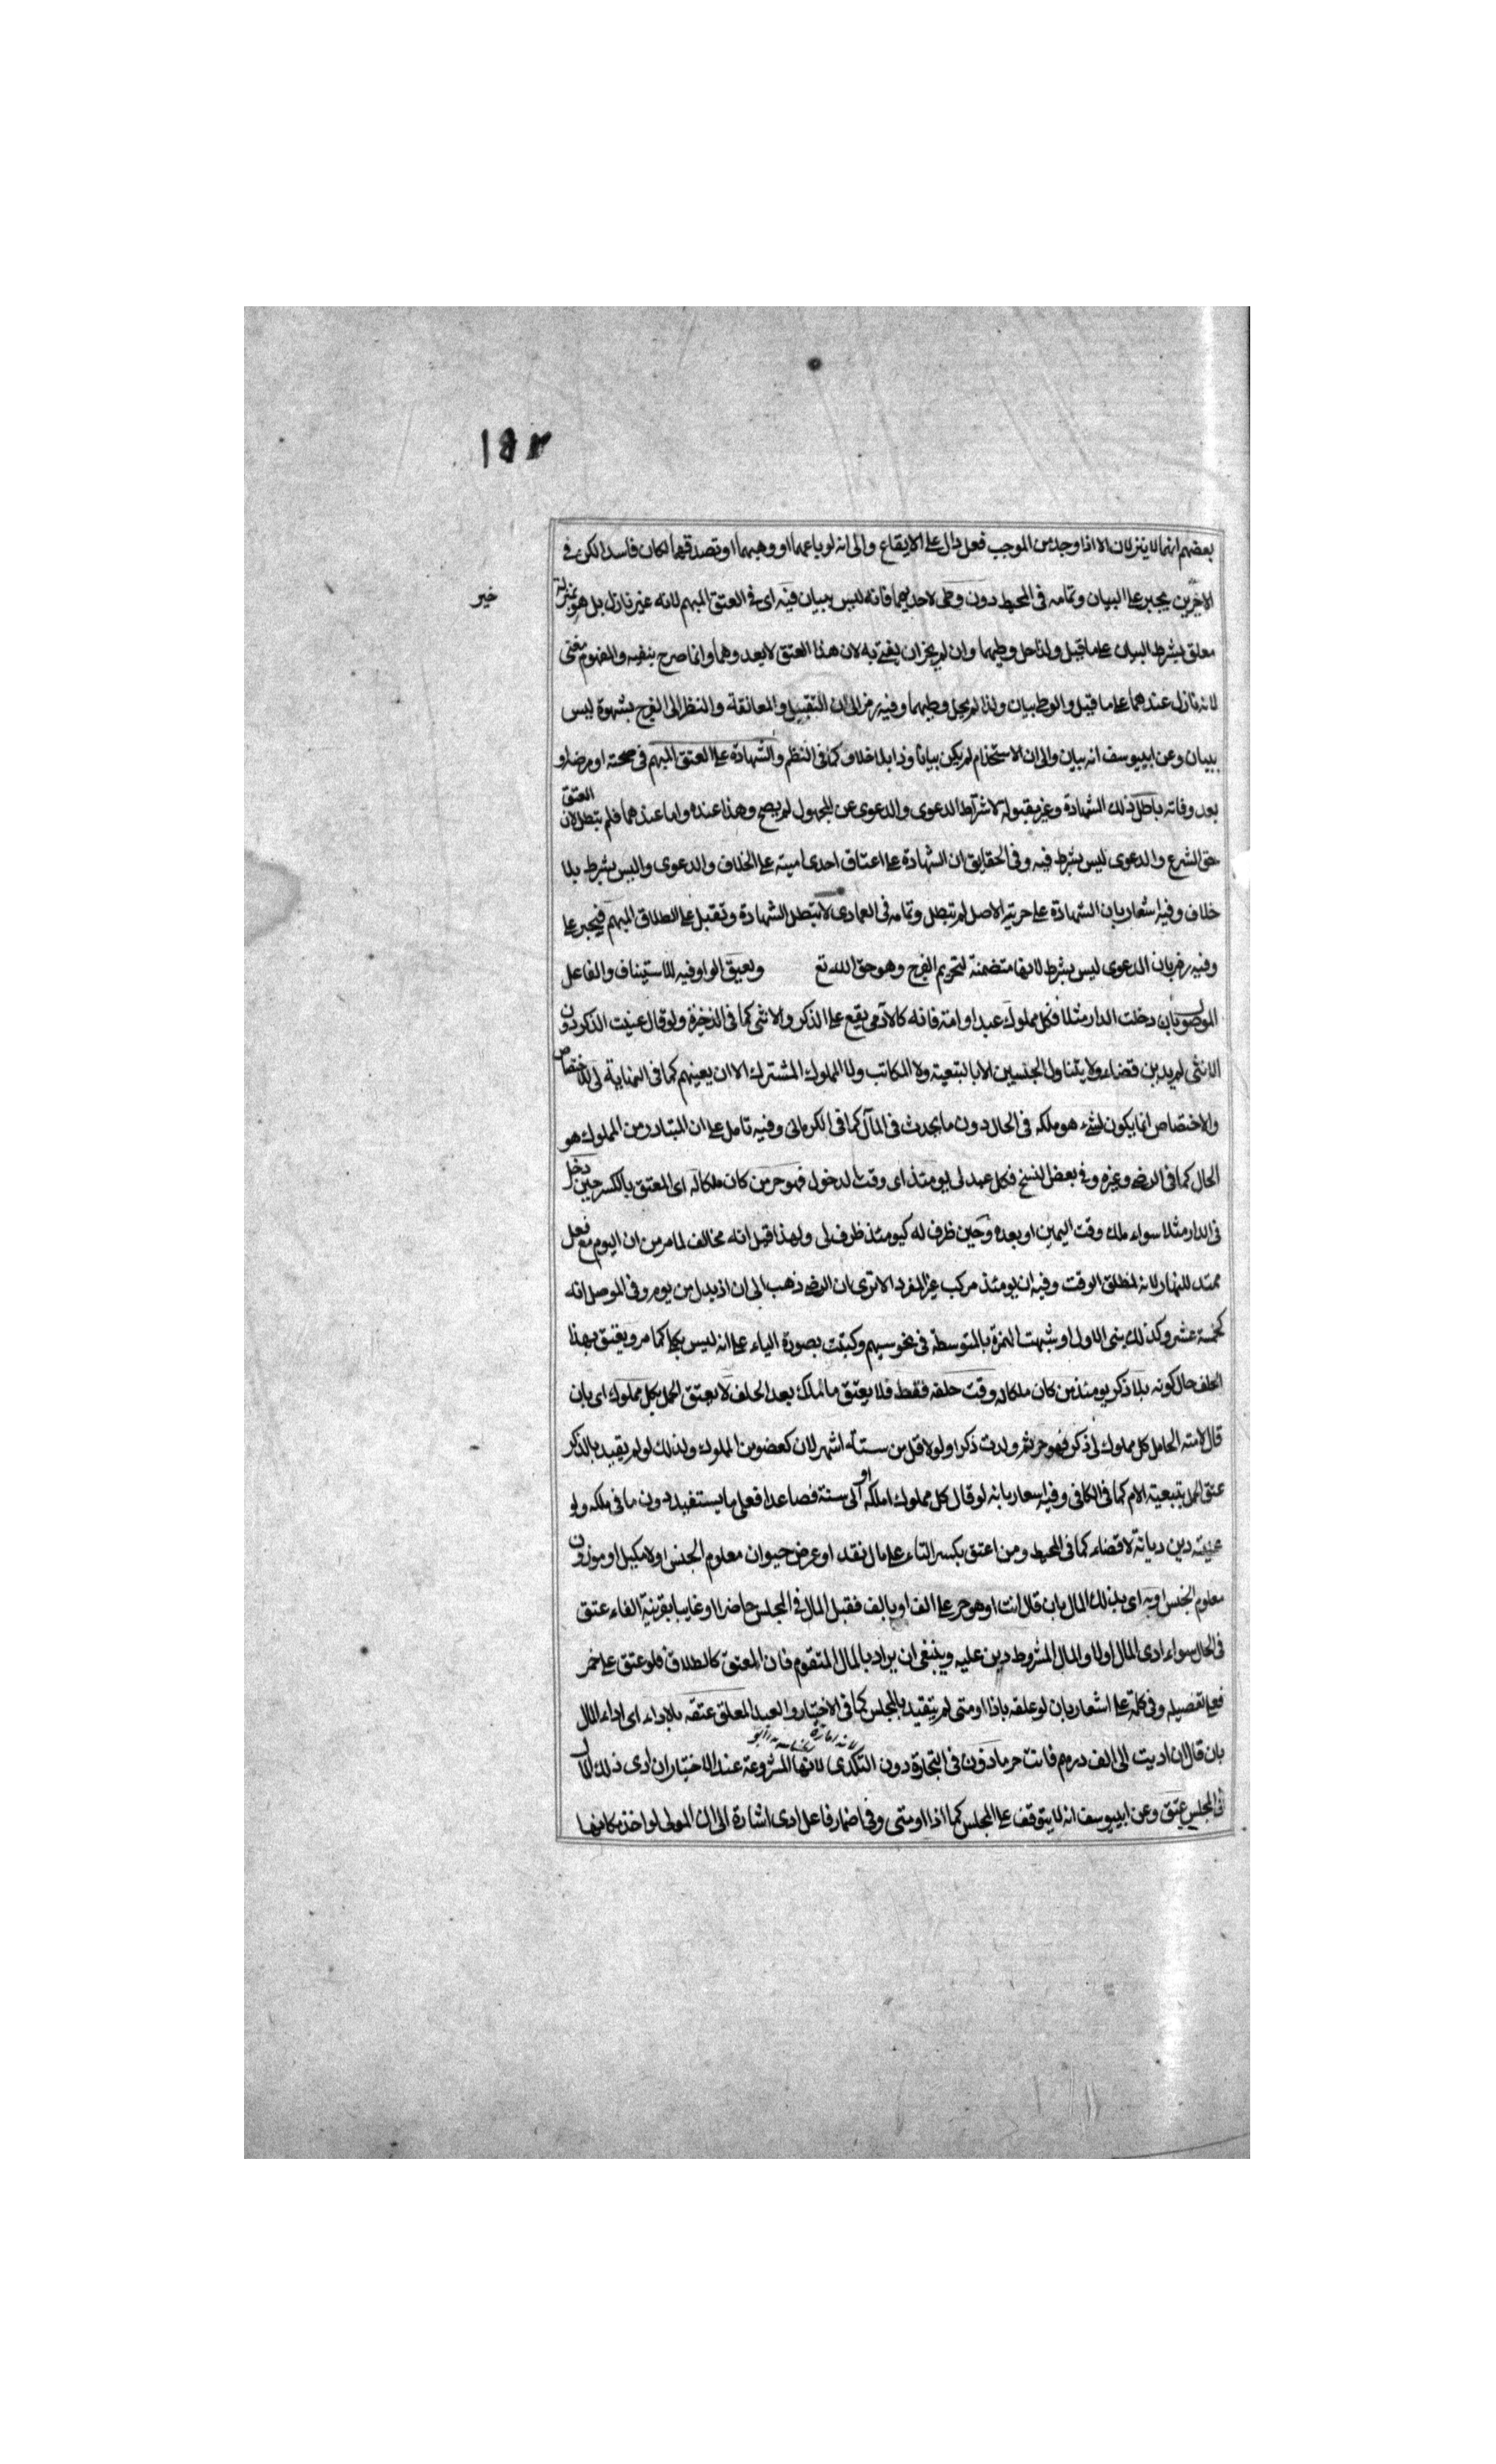 ١٥٢
بعضهم انهما لا ينزلان الا اذا وجد من الموجب فعل دال على الايقاع والى انه لو باعهما او وهبهما او تصدقهما لكان فاسدا لكن في
الاخيرين يجبر على البيان وتمامه في المحيط دون وطى لاحديهما فانه ليس ببيان فيه اى في العتق المبهم لانه غير نازل بل هو بمنزلة
خير
معلق بشرط البيان على ما قيل ولذا حل وطيهما وان لم يجز ان يفتى به لان هذا العتق لا يعدوهما وانما صرح بنفيه والمفهوم مغنى
لانه نازل عندهما على ما قيل والوطى بيان ولذا لم يحل وطيهما وفيه رمز الى ان التقبيل والمعانقة والنظر الى الفرج بشهوة ليس
ببيان وعن ابييوسف انه بيان والى ان الاستخدام لم يكن بيانا وذا بلا خلاف كما في النظم والشهادة على العتق المبهم في صحته او مرضه او
بعد وفاته باطل ذلك الشهادة وغير مقبولة لاشتراط الدعوى والدعوى عن المجهول لم يصح وهذا عنده واما عندهما فلم تبطل لان العتق
حق الشرع والدعوى ليس بشرط فيه وفي الحقايق ان الشهادة على اعتاق احدى امتيه على الخلاف والدعوى والبس بشرط بلا
خلاف وفيه اشعار بان الشهادة على حرية الاصل لم تبطل وتمامه في العمادى لا تبطل الشهادة وتقبل على الطلاق المبهم فيجبر على
وفيه رمز بان الدعوى ليس بشرط لانها متضمنة لتحريم الفرج وهو حق الله تع ويعتق الواو فيه للاستيناف والفاعل
الموصول بان دخلت الدار مثلا فكل مملوك عبدا او امة فانه كالآدمى يقع على الذكر والانثى كما في الذخيرة ولو قال عنيت الذكر دون
الانثى لم يدين قضاء ولا يتناول الجنسيين الا بالتبعية ولا المكاتب ولا المملوك المشترك الا ان يعينهم كما في النهاية لى للاختصاص
والاختصاص انما يكون لشىء هو ملكه في الحال دون ما يحدث في المآل كما في الكرمانى وفيه تامل على ان المتبادر من المملوك هو
الحال كما في الرضى وغيره وفي بعض النسخ فكل عبد لى يومئذ اى وقت الدخول فهو حر من كان ملكا له اى المعتق بالكسر حين دخل
في الدار مثلا سواء ملك وقت اليمين او بعده وحين ظرف له كيومئذ ظرف لى ولهذا قيل انه مخالف لما مر من ان اليوم مع فعل
ممتد للنهار لانه لمطلق الوقت وفيه ان يومئذ مركب غير المفرد الا ترى ان الرضى ذهب الى ان اذ بدل من يوم وفي الموصل انه
كخمسة عشر وكذلك بنى الاول او شبهت الهمزة بالمتوسطة في نحو سيم وكتبت بصورة الياء على انه ليس بكلى كما مر ويعتق بهذا
الحلف حال كونه بلا ذكر يومئذ من كان ملكا له وقت حلفه فقط فلا يعتق ما ملك بعد الحلف لا يعتق الحمل بكل مملوك اى بان
قال لامته الحامل كل مملوك لى ذكر فهو حر ثم ولدت ذكرا ولو لاقل من ستة اشهر لان كعضو من المملوك ولذلك لو لم يقيد بالذكر
عتق الحمل بتبعية الام كما في الكافى وفيه اشعار بانه لو قال كل مملوك املكه او الى سنة فصاعدا فعلى ما يستفيد دون ما في ملكه ولو
عنيته دين ديانة لا قضاء كما في المحيط ومن اعتق بكسر التاء على مال نقد او عرض حيوان معلوم الجنس اولا مكيل او موزون
معلوم الجنس او به اى بذلك المال بان قال انت او هو حر على الف او بالف فقبل المال في المجلس حاضرا او غايبا بقرينة الفاء عتق
في الحال سواء ادى المال اولا والمال المشروط دين عليه وينبغى ان يراد بالمال المتقوم فان العتق كالطلاق فلو عتق على خمر
فعلى تفصيله وفي كلمة على اشعار بان لو علقه باذا او متى لم يتقيد بالمجلس كما في الاختيار والعبد المعلق عتقه بالاداء اى اداء المال
بان قال ان اديت الى الف درهم فانت حر ماذون في التجارة دون التكدى لانها المشروعة عند الاختيار ان ادى ذلك المال
في المجلس عتق وعن ابييوسف انه لا يتوقف على المجلس كما اذا او متى وفي اضمار فاعل ادى اشارة الى ان المولى لو اخذ مكانها